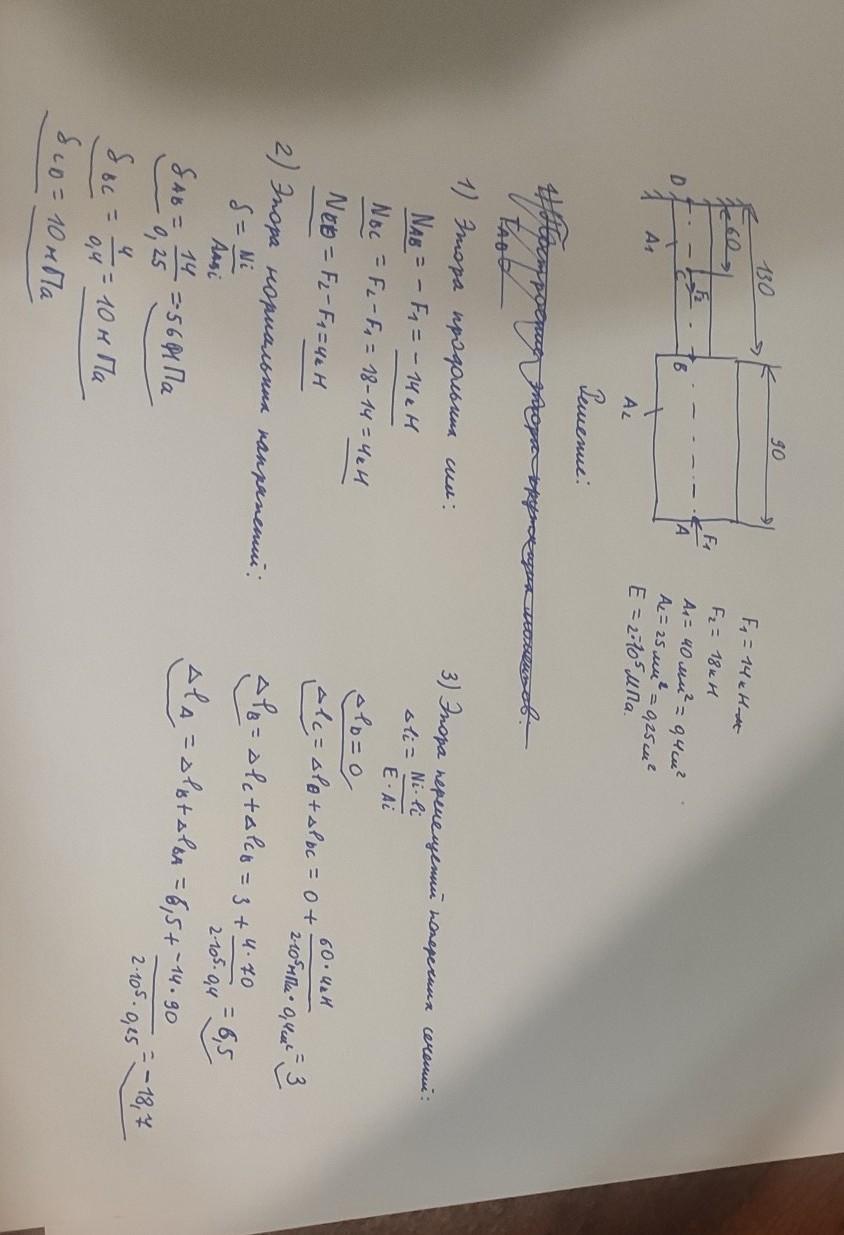 130
60
90
D
C
F₂
B
A
F₁
A₁
A₂
F₁ = 14кН
F₂ = 18кН
A₁ = 40мм² = 0,4см²
A₂ = 25мм² = 0,25см²
E = 2·10⁵МПа.
Решение:
1) Эпюра продольных сил:
N_AB = - F₁ = - 14кН
N_BC = F₂ - F₁ = 18 - 14 = 4кН
= F₂ - F₁ = 4кН
2) Эпюра нормальных напряжений:
δ = Ni / Ai
δ_AB = 14 / 0,25 = 56МПа
δ_BC = 4 / 0,4 = 10мПа
δ_CD = 10мПа
3) Эпюра перемещений поперечных сечений:
Δli = Ni·li / E·Ai
Δl_D = 0
Δl_C = Δl_D + Δl_DC = 0 + 60·4кН / 2·10⁵мПа·0,4см² = 3
Δl_B = Δl_C + Δl_CB = 3 + 4·70 / 2·10⁵·0,4 = 6,5
Δl_A = Δl_B + Δl_BA = 6,5 + -14·90 / 2·10⁵·0,25 = -18,7